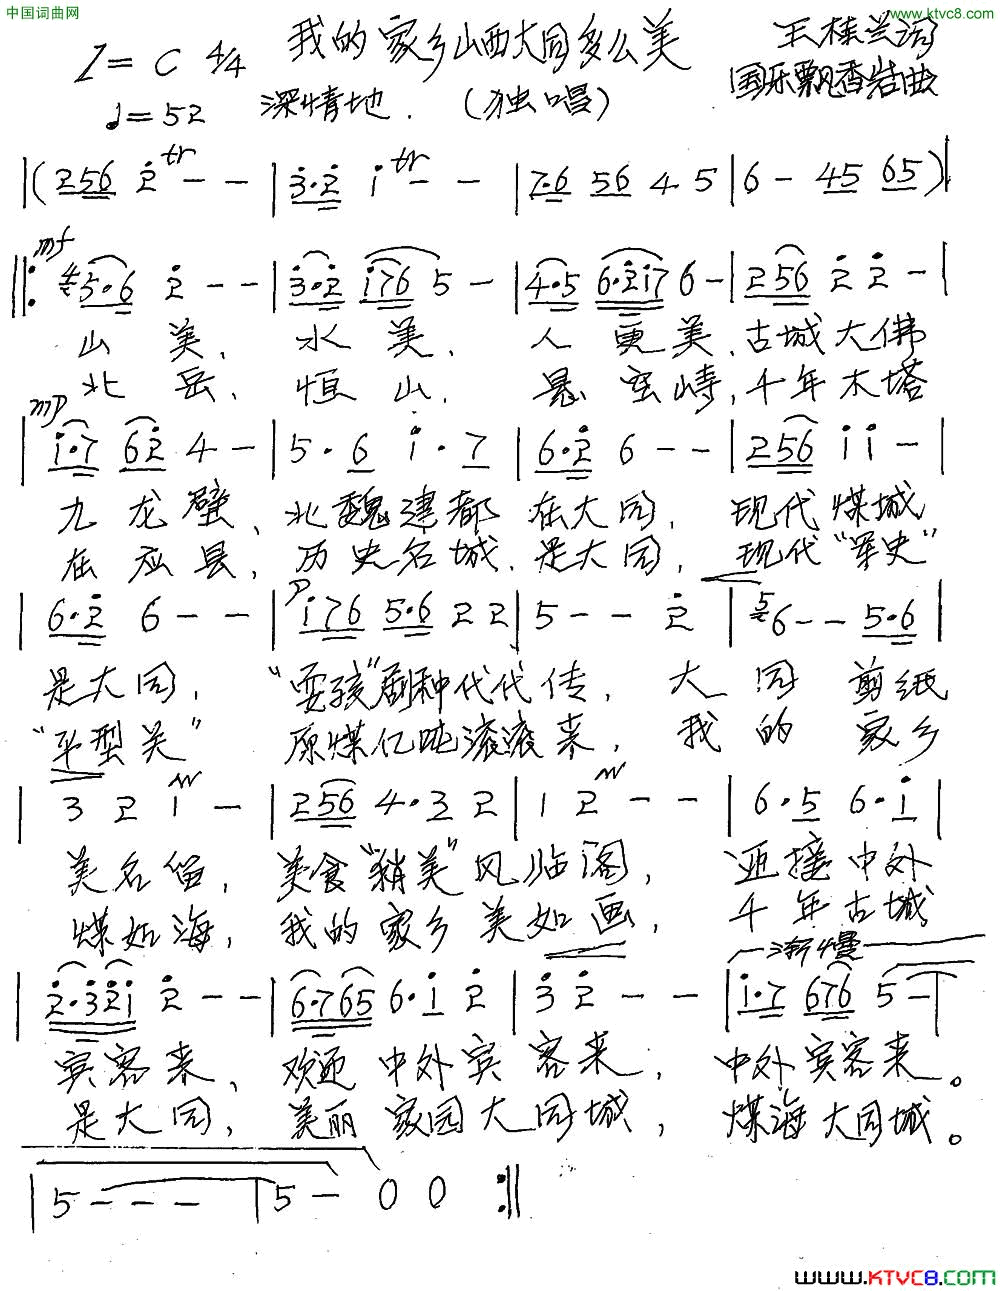 中国词曲网
www.ktvc8.com
我的家乡山西大同多么美
王桂兰词
1=C 4/4
国乐飘香岩曲
♩=52 深情地. (独唱)
|(256 2̇ tr - - |3̇·2̇ 1̇ tr - - |7·6 56 4 5|6 - 45 65)|
mf
‖: 5·6 2̇ - - |3̇·2̇ 1̇76 5 - |4·5 6·2̇1̇7 6 - |256 2̇ 2̇ - |
山美、水美、人更美,古城大佛
北岳、恒山、悬空寺,千年木塔
mp
|1̇·7 62̇ 4 - |5·6 1̇·7 |6·2̇ 6 - - |256 1̇ 1̇ - |
九龙壁、北魏建都在大同, 现代煤城
在应县, 历史名城是大同, 现代“军史”
|6·2̇ 6 - - |p 1̇76 5·6 2 2|5 - - 2̇ |6 - - 5·6|
是大同, “耍孩”剧种代代传, 大同剪纸
“平型关” 原煤亿吨滚滚来, 我的家乡
|3 2 1 - - |256 4·3 2|1 2 - - |6·5 6·1̇|
美名留, 美食“稍美”风临阁, 迎接中外
煤如海, 我的家乡美如画, 千年古城
渐慢
|2̇·3̇2̇1̇ 2̇ - - |6·765 6·1̇ 2̇ |3̇ 2̇ - - |1̇·7 676 5 - |
宾客来、欢迎中外宾客来, 中外宾客来。
是大同, 美丽家园大同城, 煤海大同城。
|5 - - - |5 - 0 0 :‖
www.KTVC8.com